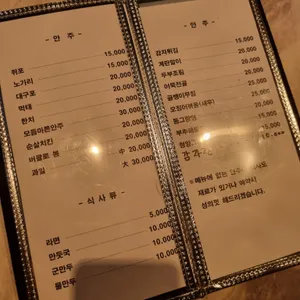 - 안 주 -
쥐포 15,000
노가리 20,000
대구포 20,000
먹태 20,000
한치 30,000
모듬마른안주 20,000
순살치킨 20,000
버팔로 봉 20,000
과일 中 20,000 大 30,000
- 식 사 류 -
라면 5,000
만둣국 10,000
군만두 10,000
물만두 10,000
- 안 주 -
감자튀김 15,000
계란말이 20,000
두부조림 20,000
어묵전골 20,000
골뱅이무침 25,000
오징어볶음(새우)
동그랑땡
부추
※메뉴에 없는
재료가 있거나 예약시
성의껏 해드리겠습니다.